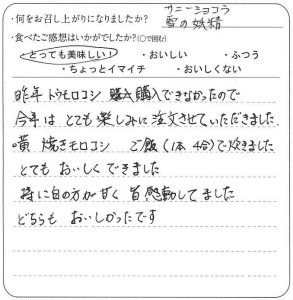 ・何をお召し上がりになりましたか？ サニーショコラ
雪の妖精
・食べたご感想はいかがでしたか？(〇で囲む)
とっても美味しい！ ・おいしい ・ふつう
・ちょっとイマイチ ・おいしくない
昨年 トウモロコシ 購入できなかったので
今年は とても楽しみに注文させていただきました
黄 焼きモロコシ ご飯(1本 4合)で炊きました
とても おいしくできました
特に白の方が甘く 皆感動してました
どちらも おいしかったです